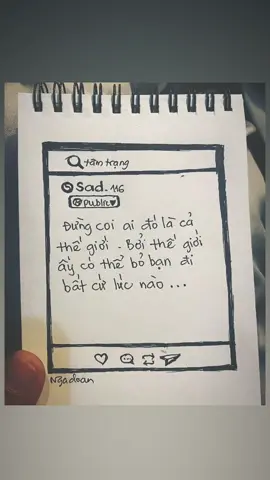 tâm trạng
Sad.116
@public
Đừng coi ai đó là cả
thế giới. Bởi thế giới
ấy có thể bỏ bạn đi
bất cứ lúc nào...
Ngadoan